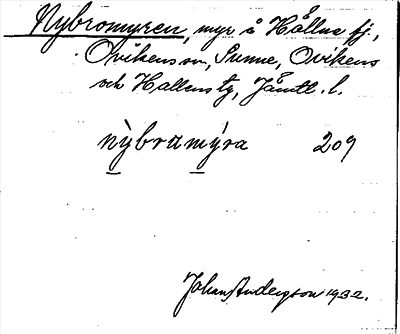 Nybromyren, myr å Hållne fj.,
Ovikens sn, Sunne, Ovikens
och Hallens tg, Jämtl. l.
nỳbramýra 209
Johan Anderzson 1932.